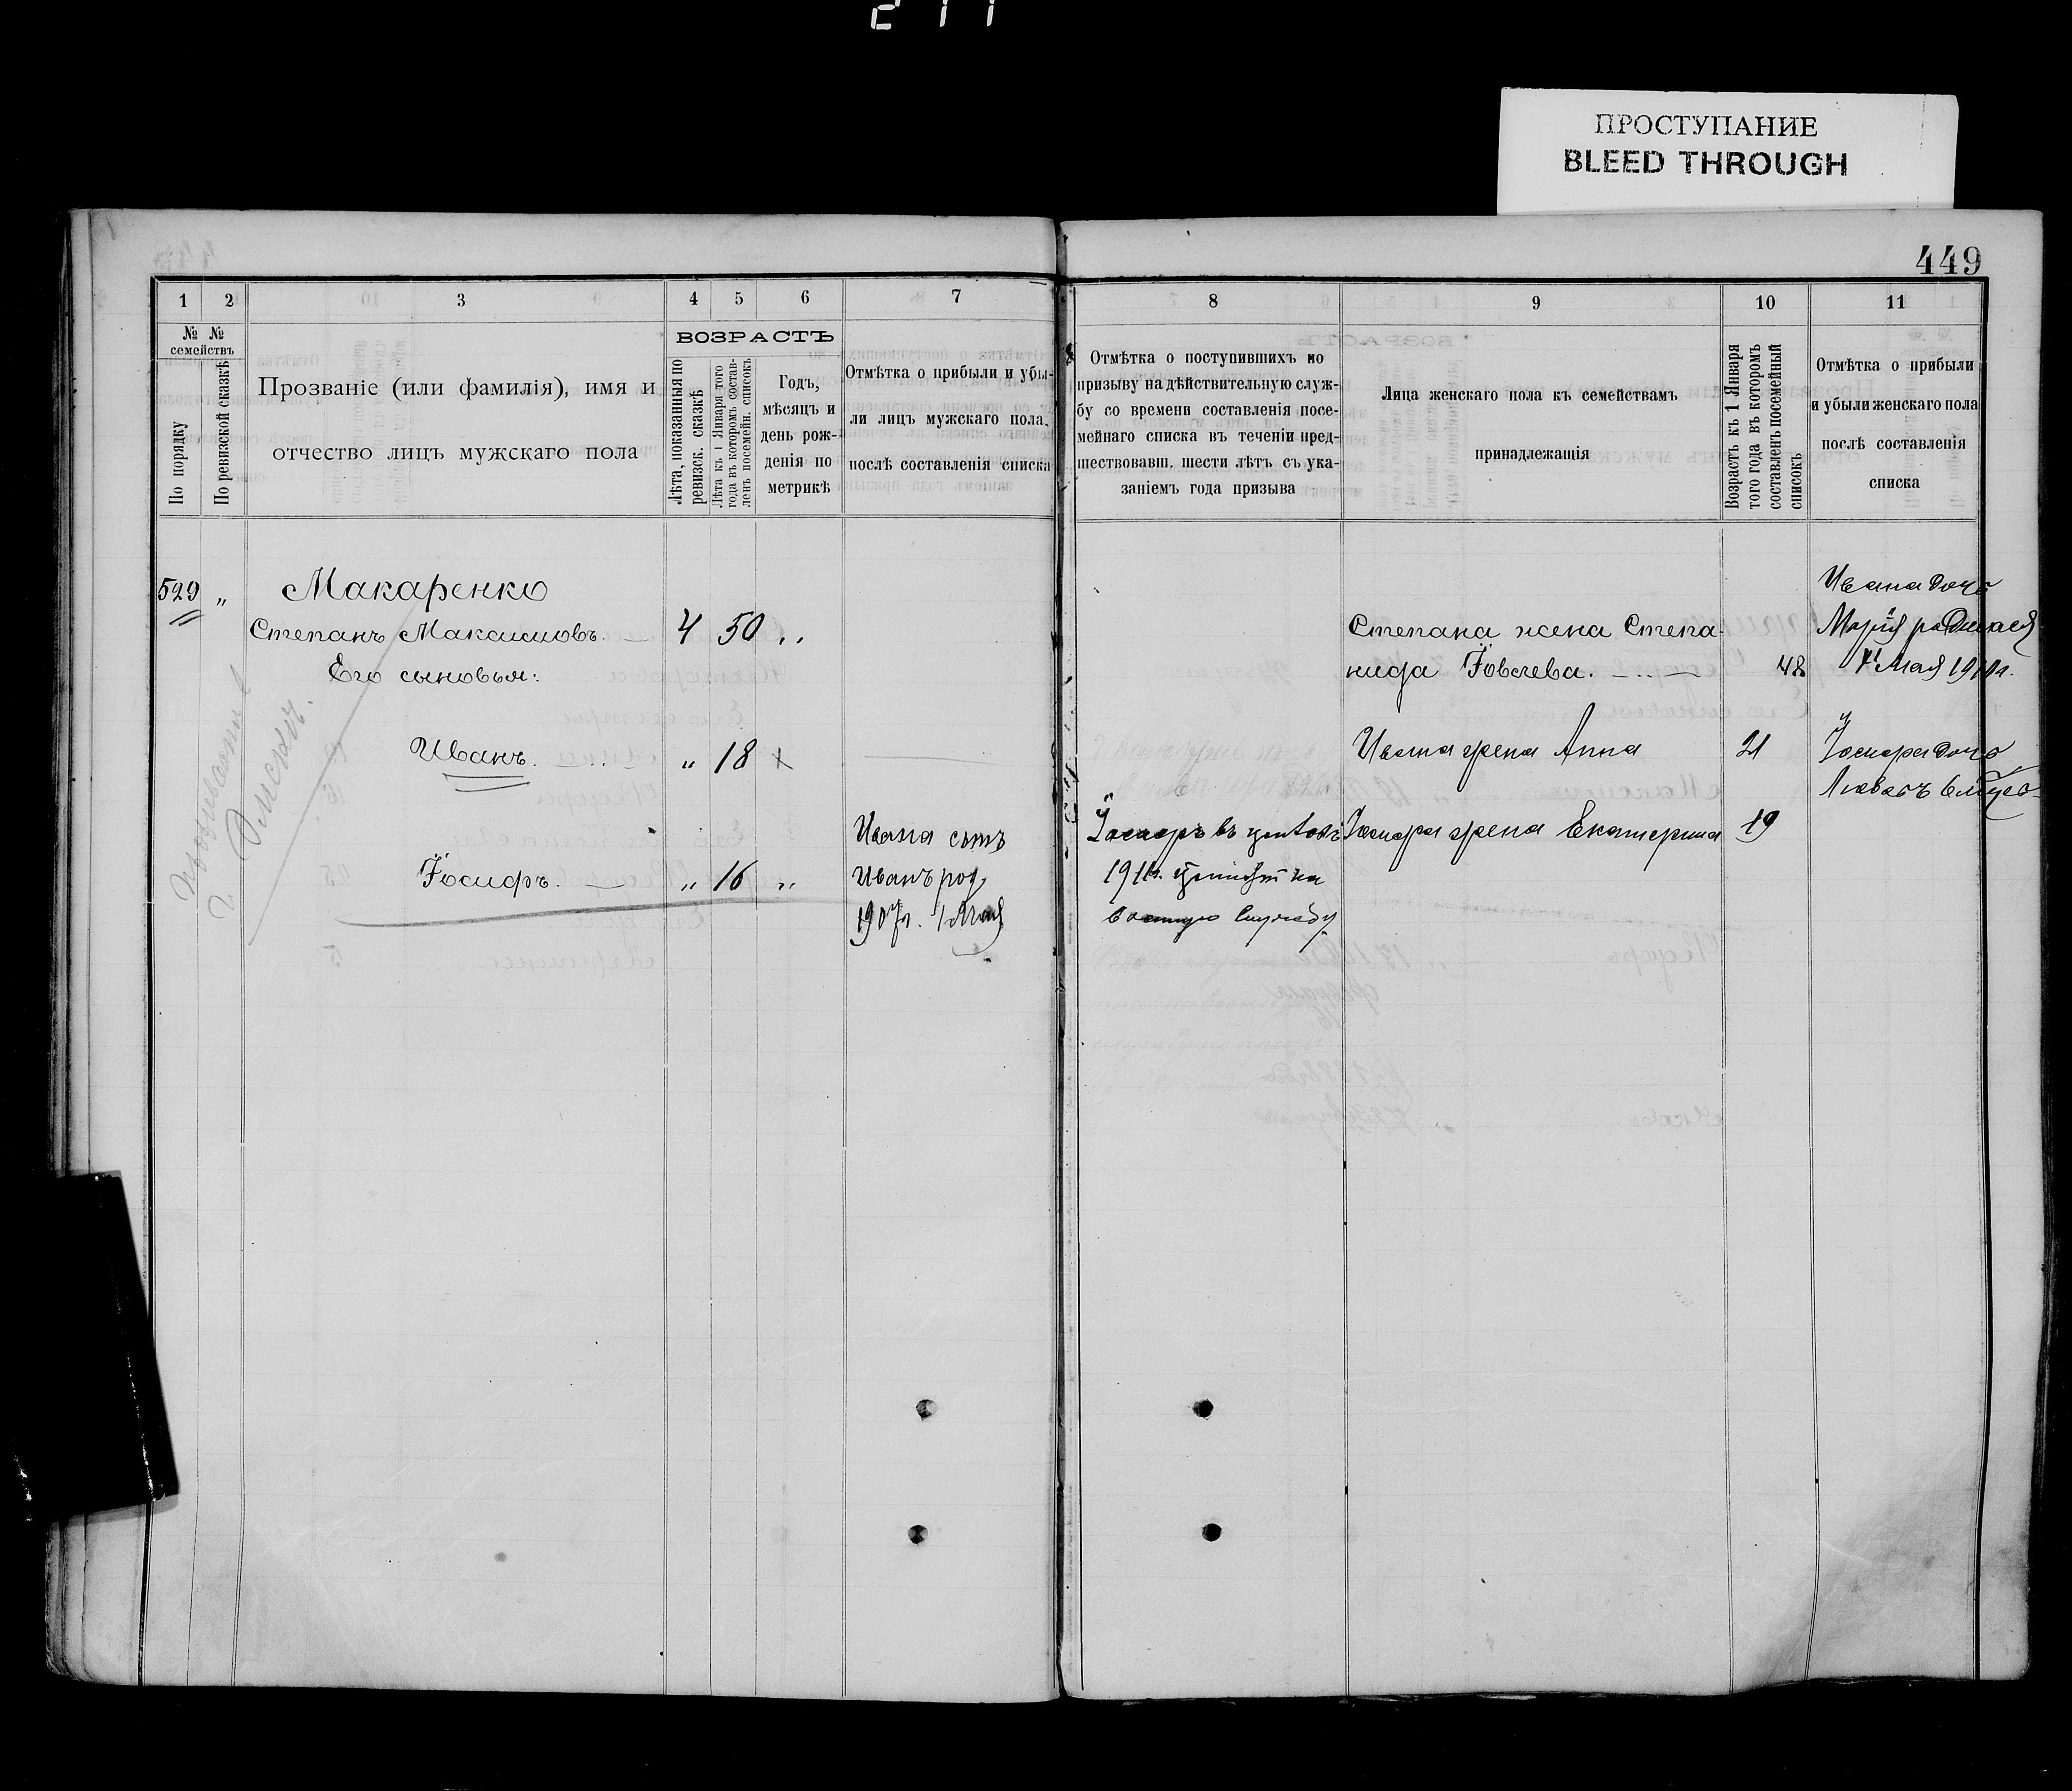 211
ПРОСТУПАНИЕ
BLEED THROUGH
449
1 2 3 4 5 6 7
№ № семействъ
По порядку
По ревизской сказкѣ
Прозваніе (или фамилія), имя и
отчество лицъ мужскаго пола
ВОЗРАСТЪ
Лѣта, показанныя по
ревизск. сказкѣ
Лѣта къ 1 Января того
года въ которомъ состав-
ленъ посемейн. списокъ
Годъ,
мѣсяцъ и
день рож-
денія по
метрикѣ
Отмѣтка о прибыли и убы-
ли лицъ мужскаго пола,
послѣ составленія списка
529 „ Макаренко
Степанъ Максимовъ. 4 50 „
Его сыновья:
Иванъ. „ 18 х
Іосифъ. „ 16 „
Ивана сынъ
Иванъ род.
1907г. 1 Мая
8 9 10 11
Отмѣтка о поступившихъ по
призыву на дѣйствительную служ-
бу со времени составленія посе-
мейнаго списка въ теченіи пред-
шествовавш. шести лѣтъ съ ука-
заніемъ года призыва
Лица женскаго пола къ семействамъ
принадлежащія
Возрастъ къ 1 Января
того года въ которомъ
составленъ посемейный
списокъ
Отмѣтка о прибыли
и убыли женскаго пола
послѣ составленія
списка
Іосифъ въ
1911г. на
военную службу
Степана жена Степа-
нида Іовлева. 48
Ивана жена Анна 21
Іосифа жена Екатерина 19
Ивана дочь
Марія родилась
Мая 1910г.
Іосифа дочь